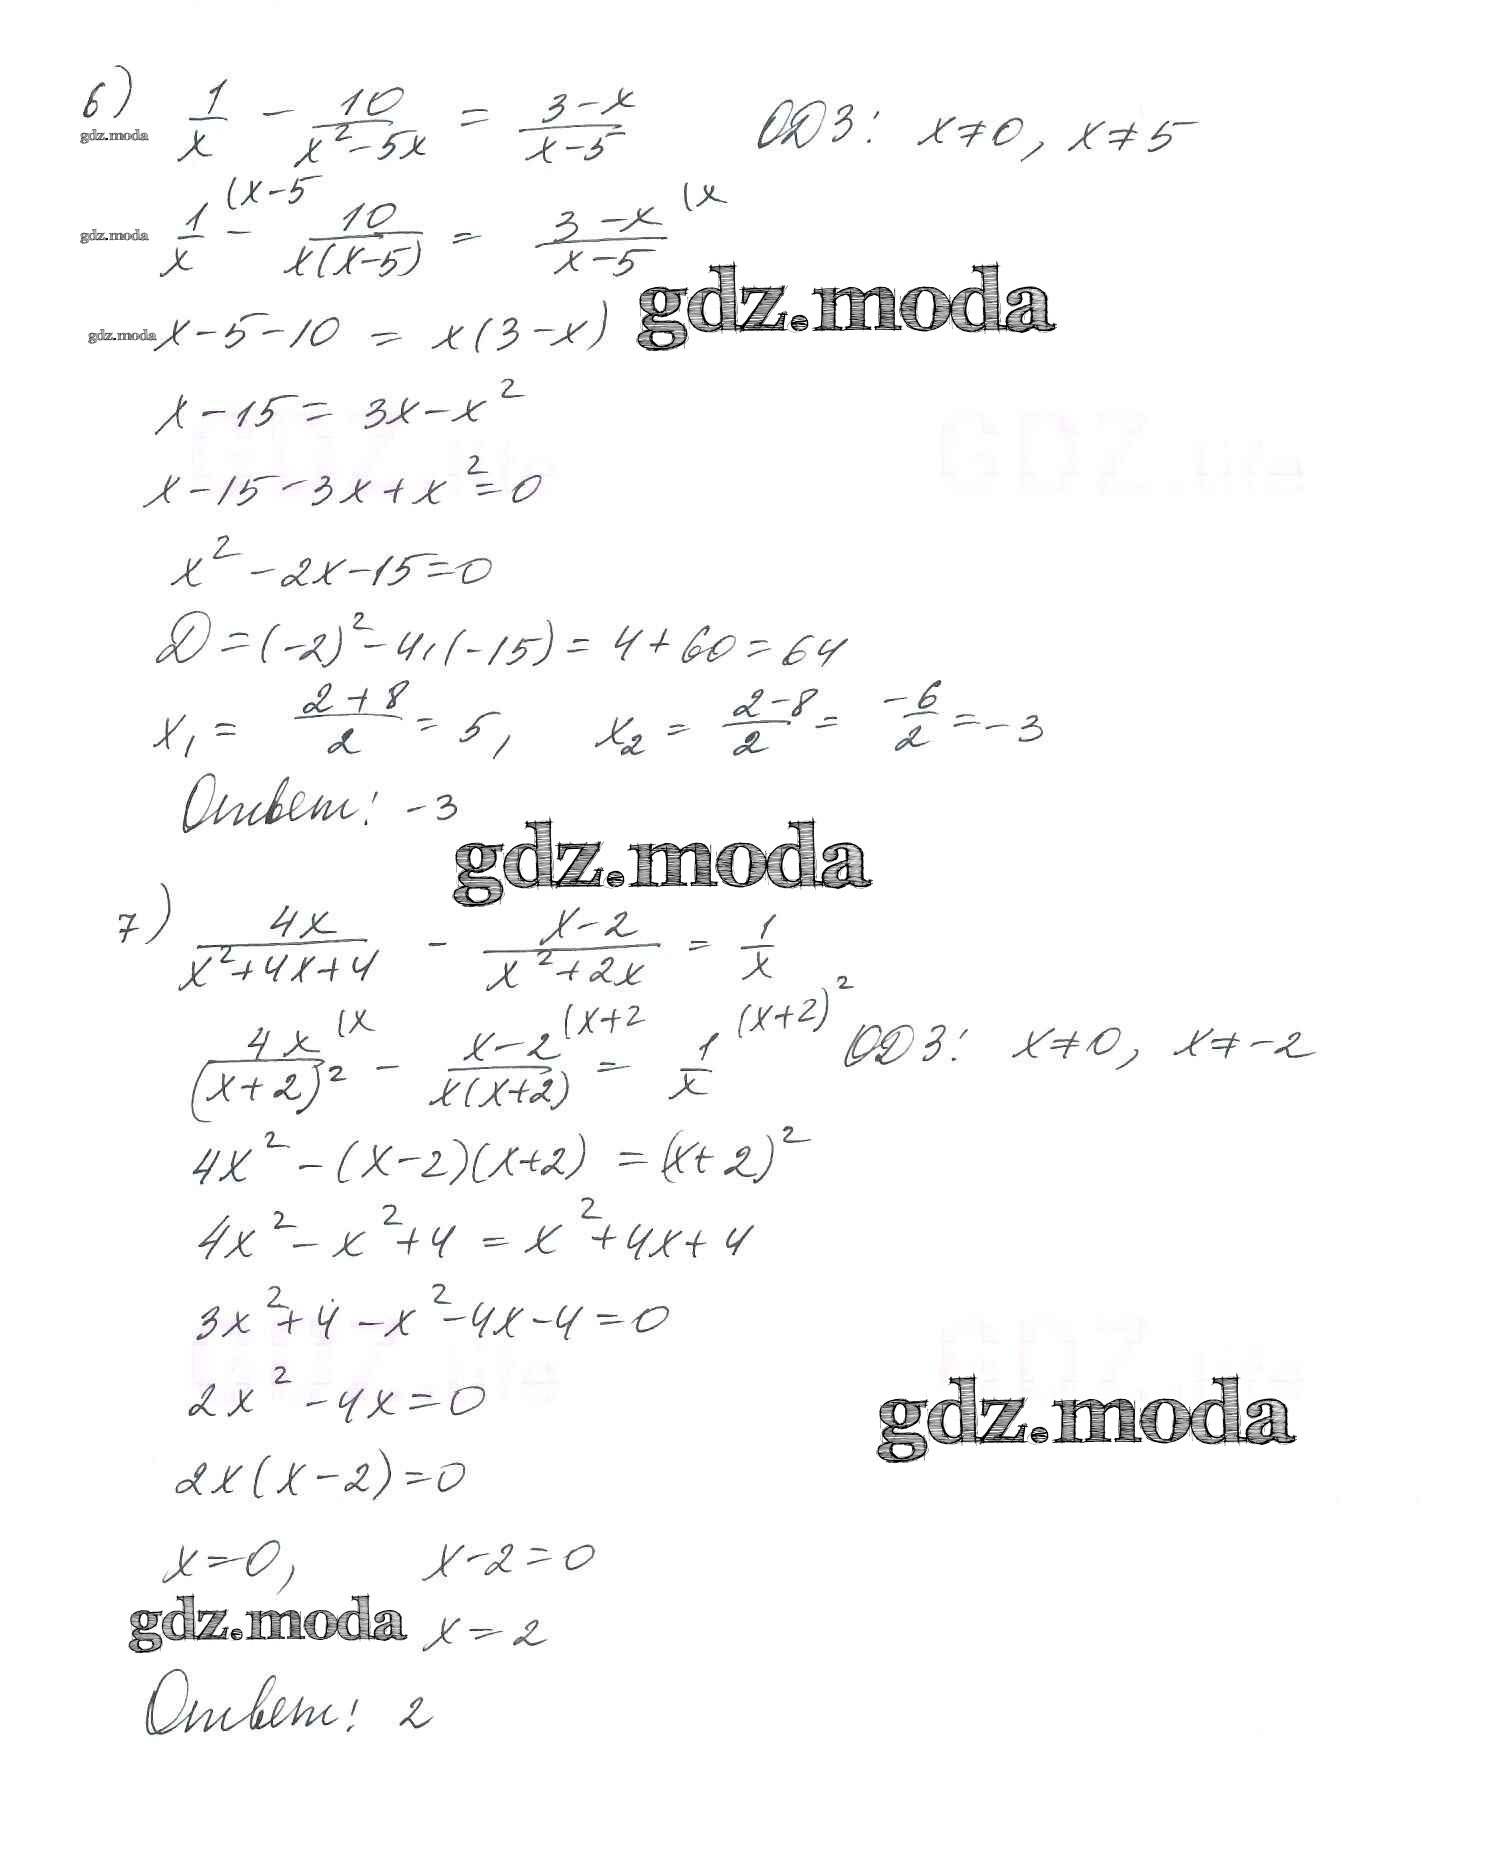 6) 1/x - 10/(x²-5x) = (3-x)/(x-5) ОДЗ: x≠0, x≠5
gdz.moda
1/x (x-5 - 10/(x(x-5)) = (3-x)/(x-5) (x
gdz.moda
gdz.moda
gdz.moda x-5-10 = x(3-x)
x-15 = 3x-x²
x-15-3x+x²=0
x²-2x-15=0
D=(-2)²-4·(-15)=4+60=64
x₁ = (2+8)/2 = 5, x₂ = (2-8)/2 = -6/2 = -3
Ответ: -3
gdz.moda
7) 4x/(x²+4x+4) - (x-2)/(x²+2x) = 1/x
4x/(x+2)² (x - (x-2)/(x(x+2)) (x+2 = 1/x (x+2)² ОДЗ: x≠0, x≠-2
4x²-(x-2)(x+2) = (x+2)²
4x²-x²+4 = x²+4x+4
3x²+4-x²-4x-4=0
2x²-4x=0
gdz.moda
2x(x-2)=0
x=0, x-2=0
gdz.moda x=2
Ответ: 2